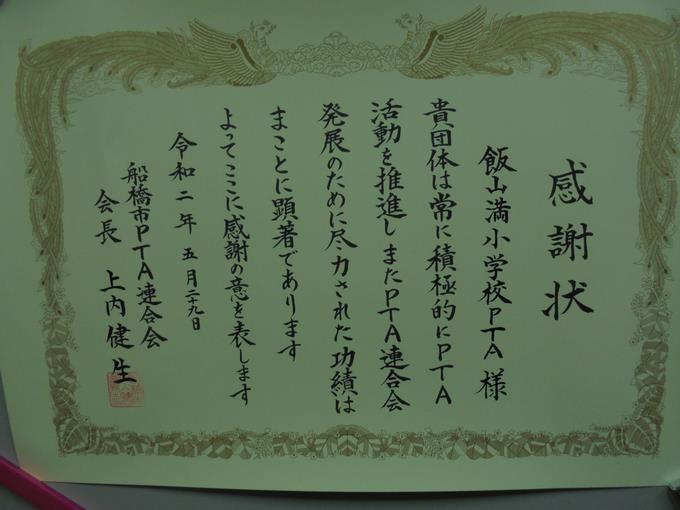 感謝状
飯山満小学校PTA 様
貴団体は常に積極的にPTA
活動を推進し またPTA連合会
発展のために尽力された功績は
まことに顕著であります
よってここに感謝の意を表します
令和二年 五月二十九日
船橋市PTA連合会
会長 上内健生